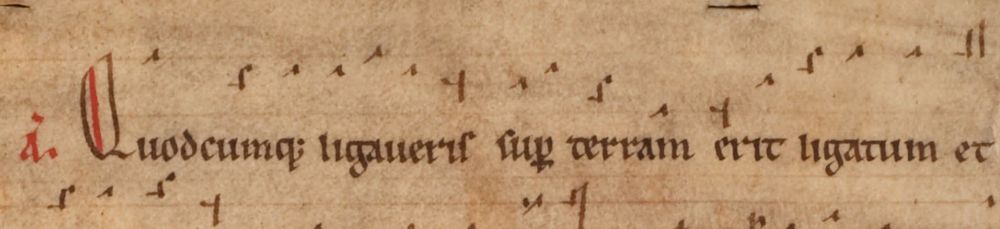 A. Quodcumq; ligaueris sup terram erit ligatum et